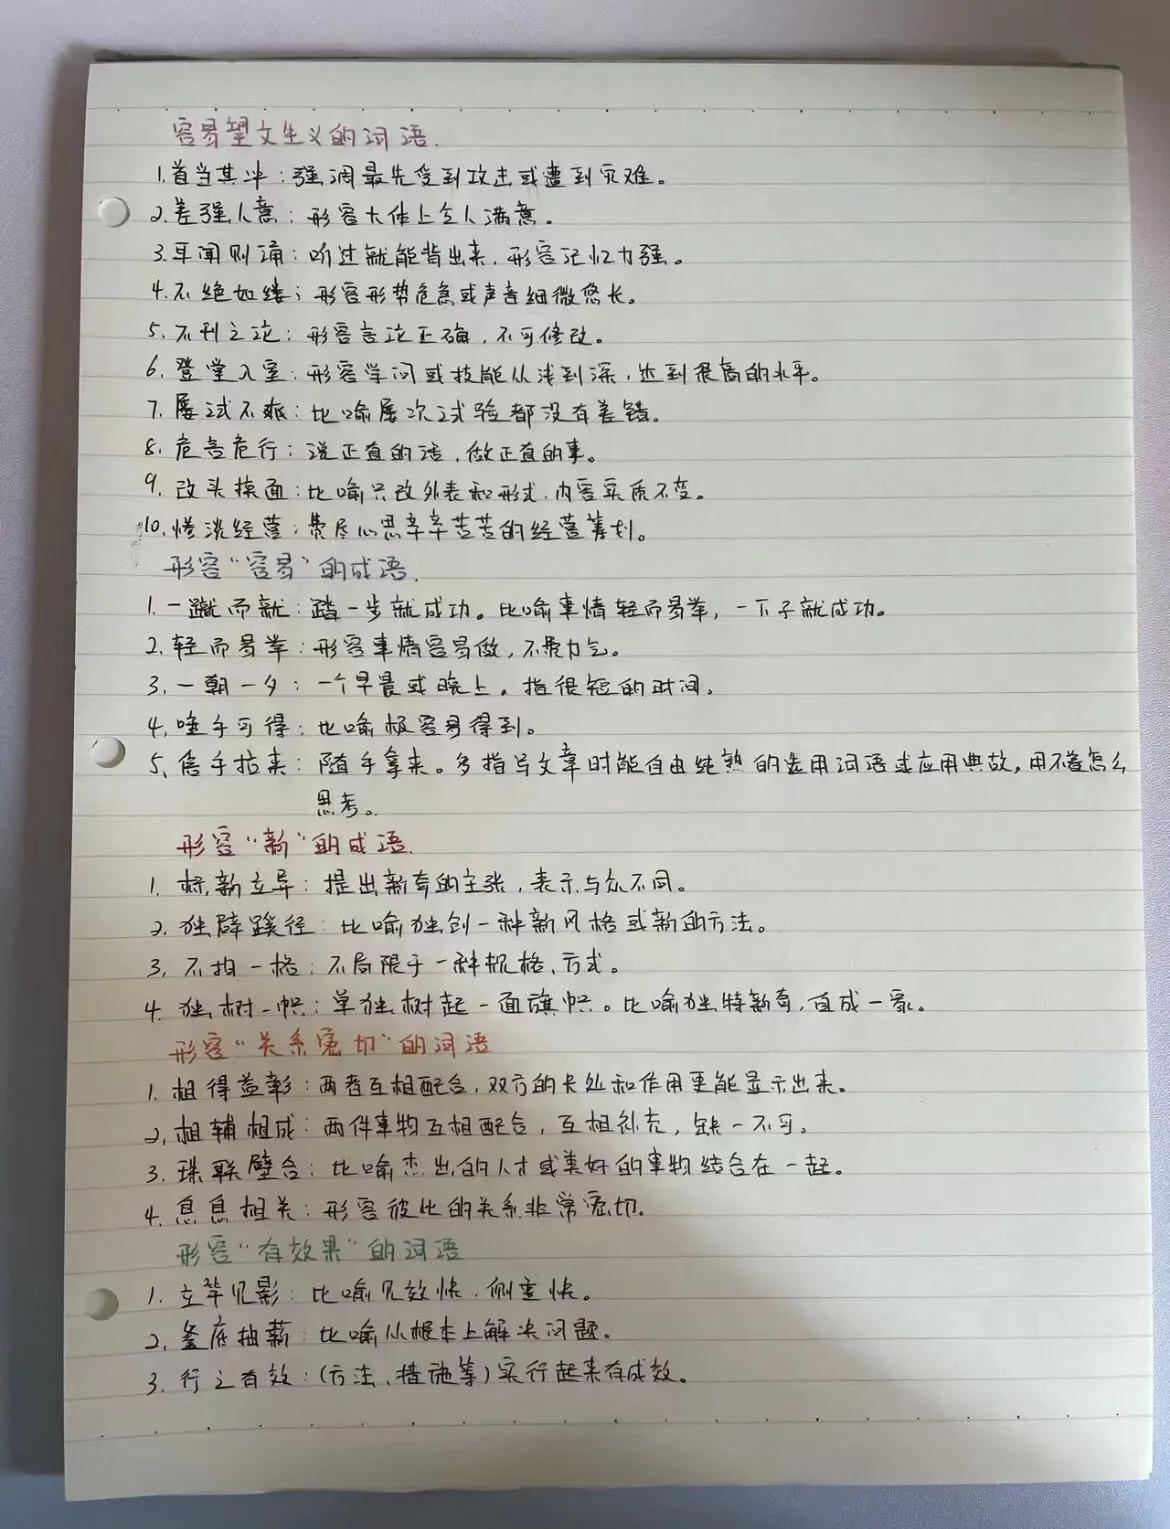 容易望文生义的词语.
1.首当其冲:强调最先受到攻击或遭到灾难。
2.差强人意:形容大体上令人满意。
3.耳闻则诵:听过就能背出来,形容记忆力强。
4.不绝如缕:形容形势危急或声音细微悠长。
5.不刊之论:形容言论正确,不可修改。
6.登堂入室:形容学问或技能从浅到深,达到很高的水平。
7.屡试不爽:比喻屡次试验都没有差错。
8.危言危行:说正直的话,做正直的事。
9.改头换面:比喻只改外表和形式,内容实质不变。
10.惨淡经营:费尽心思辛辛苦苦的经营筹划。
形容“容易”的成语.
1.一蹴而就:踏一步就成功。比喻事情轻而易举,一下子就成功。
2.轻而易举:形容事情容易做,不费力气。
3.一朝一夕:一个早晨或晚上。指很短的时间。
4.唾手可得:比喻极容易得到。
5.信手拈来:随手拿来。多指写文章时能自由纯熟的选用词语或应用典故,用不着怎么
思考。
形容“新”的成语.
1.标新立异:提出新奇的主张,表示与众不同。
2.独辟蹊径:比喻独创一种新风格或新的方法。
3.不拘一格:不局限于一种规格、方式。
4.独树一帜:单独树起一面旗帜。比喻独特新奇,自成一家。
形容“关系密切”的词语
1.相得益彰:两者互相配合,双方的长处和作用更能显示出来。
2.相辅相成:两件事物互相配合,互相补充,缺一不可。
3.珠联璧合:比喻杰出的人才或美好的事物结合在一起。
4.息息相关:形容彼此的关系非常密切。
形容“有效果”的词语
1.立竿见影:比喻见效快,侧重快。
2.釜底抽薪:比喻从根本上解决问题。
3.行之有效:(方法、措施等)实行起来有成效。